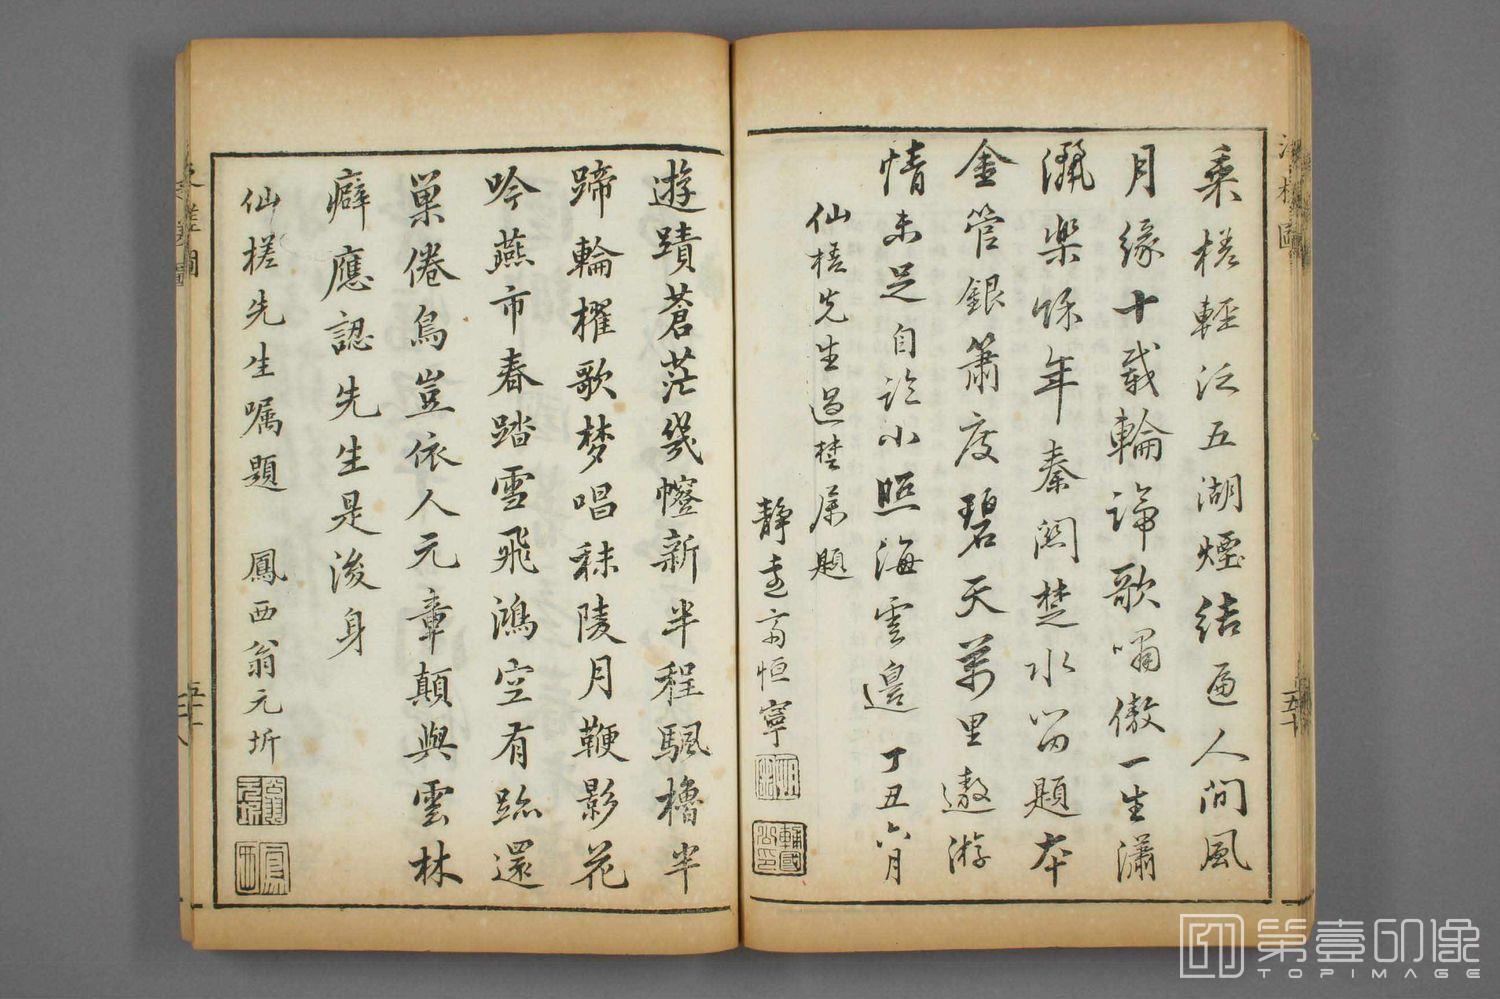 乘槎輕泛五湖煙結遍人間風
月緣十載輪蹄歌嘯傲一生瀟
灑樂餘年秦關楚水留題本
金管銀簫度碧天萬里遨游
情未足自臨小照海雲邊 丁丑六月
仙槎先生過焚屬題
靜圭齋恒寧
輔國公印
遊蹟蒼茫幾幰新半程颿櫓半
蹄輪櫂歌梦唱秣陵月鞭影花
吟燕市春踏雪飛鴻空有跡還
巢倦鳥豈依人元章顛與雲林
癖應認先生是後身
仙槎先生嘱題 鳳西翁元圻
鳳西
第壹印像
TOPIMAGE